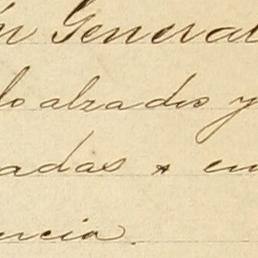 ón General
lo alzados y
adas * en
encia.